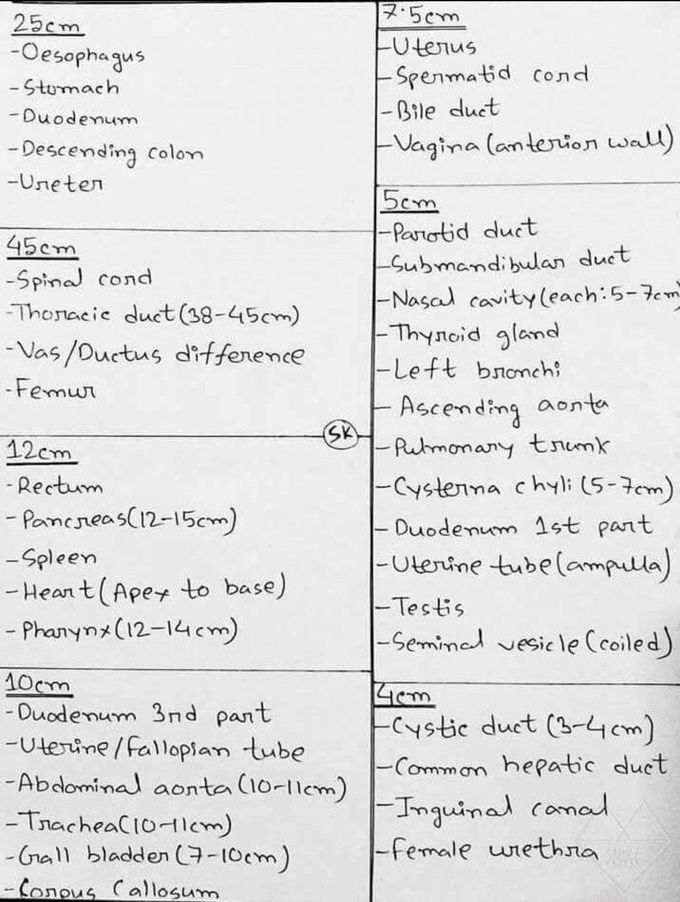 25cm
-Oesophagus
-Stomach
-Duodenum
-Descending colon
-Ureter
45cm
-Spinal cord
-Thoracic duct (38-45cm)
-Vas/Ductus difference
-Femur
12cm
-Rectum
-Pancreas(12-15cm)
-Spleen
-Heart (Apex to base)
-Pharynx(12-14cm)
10cm
-Duodenum 3rd part
-Uterine/Fallopian tube
-Abdominal aorta (10-11cm)
-Trachea(10-11cm)
-Gall bladder (7-10cm)
-Corpus Callosum
SK
7.5cm
-Uterus
-Spermatid cord
-Bile duct
-Vagina (anterior wall)
5cm
-Parotid duct
-Submandibular duct
-Nasal cavity (each:5-7cm)
-Thyroid gland
-Left bronchi
- Ascending aorta
-Pulmonary trunk
-Cysterna chyli (5-7cm)
- Duodenum 1st part
-Uterine tube (ampulla)
-Testis
-Seminal vesicle (coiled)
4cm
-Cystic duct (3-4cm)
-Common hepatic duct
-Inguinal canal
-Female urethra